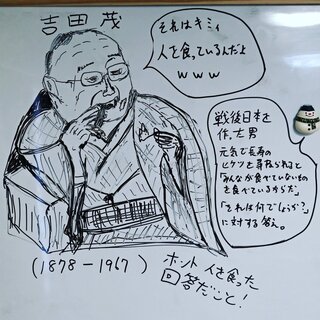 吉田 茂
それはキミィ
人を食っているんだよ
www
戦後日本を
作った男
元気で長寿の
ヒケツを尋ねられると
「みんなが食べていないもの
を食べているからだ」
「それは何でしょうか?」
に対する答え。
(1878-1967)
ホント 人を食った
回答だこと!